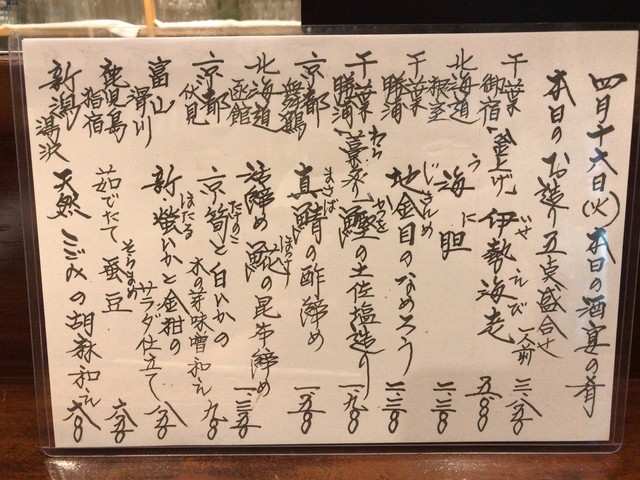 四月十六日(火)本日の酒宴の肴
本日のお造り五点盛合せ 一人前 三、八五〇
千葉 御宿 釜上げ 伊勢海老 いせえび 五、五〇〇
北海道 根室 海胆 うに 二、三〇〇
千葉 勝浦 地金目のなめろう じきんめ 二、三〇〇
千葉 勝浦 藁炙り 鰹の土佐塩造り わら かつを 一、九〇〇
京都 舞鶴 真鯖の酢締め まさば 一、五〇〇
北海道 函館 活締め 𩸽の昆布締め ほっけ 一、三五〇
京都 伏見 京筍と白いかの 木の芽味噌和え たけのこ 九〇〇
富山 滑川 新・螢いかと金柑の サラダ仕立て ほたる 八五〇
鹿児島 指宿 茹でたて 蚕豆 そらまめ 六五〇
新潟 湯沢 天然 こごみの胡麻和え 六八〇